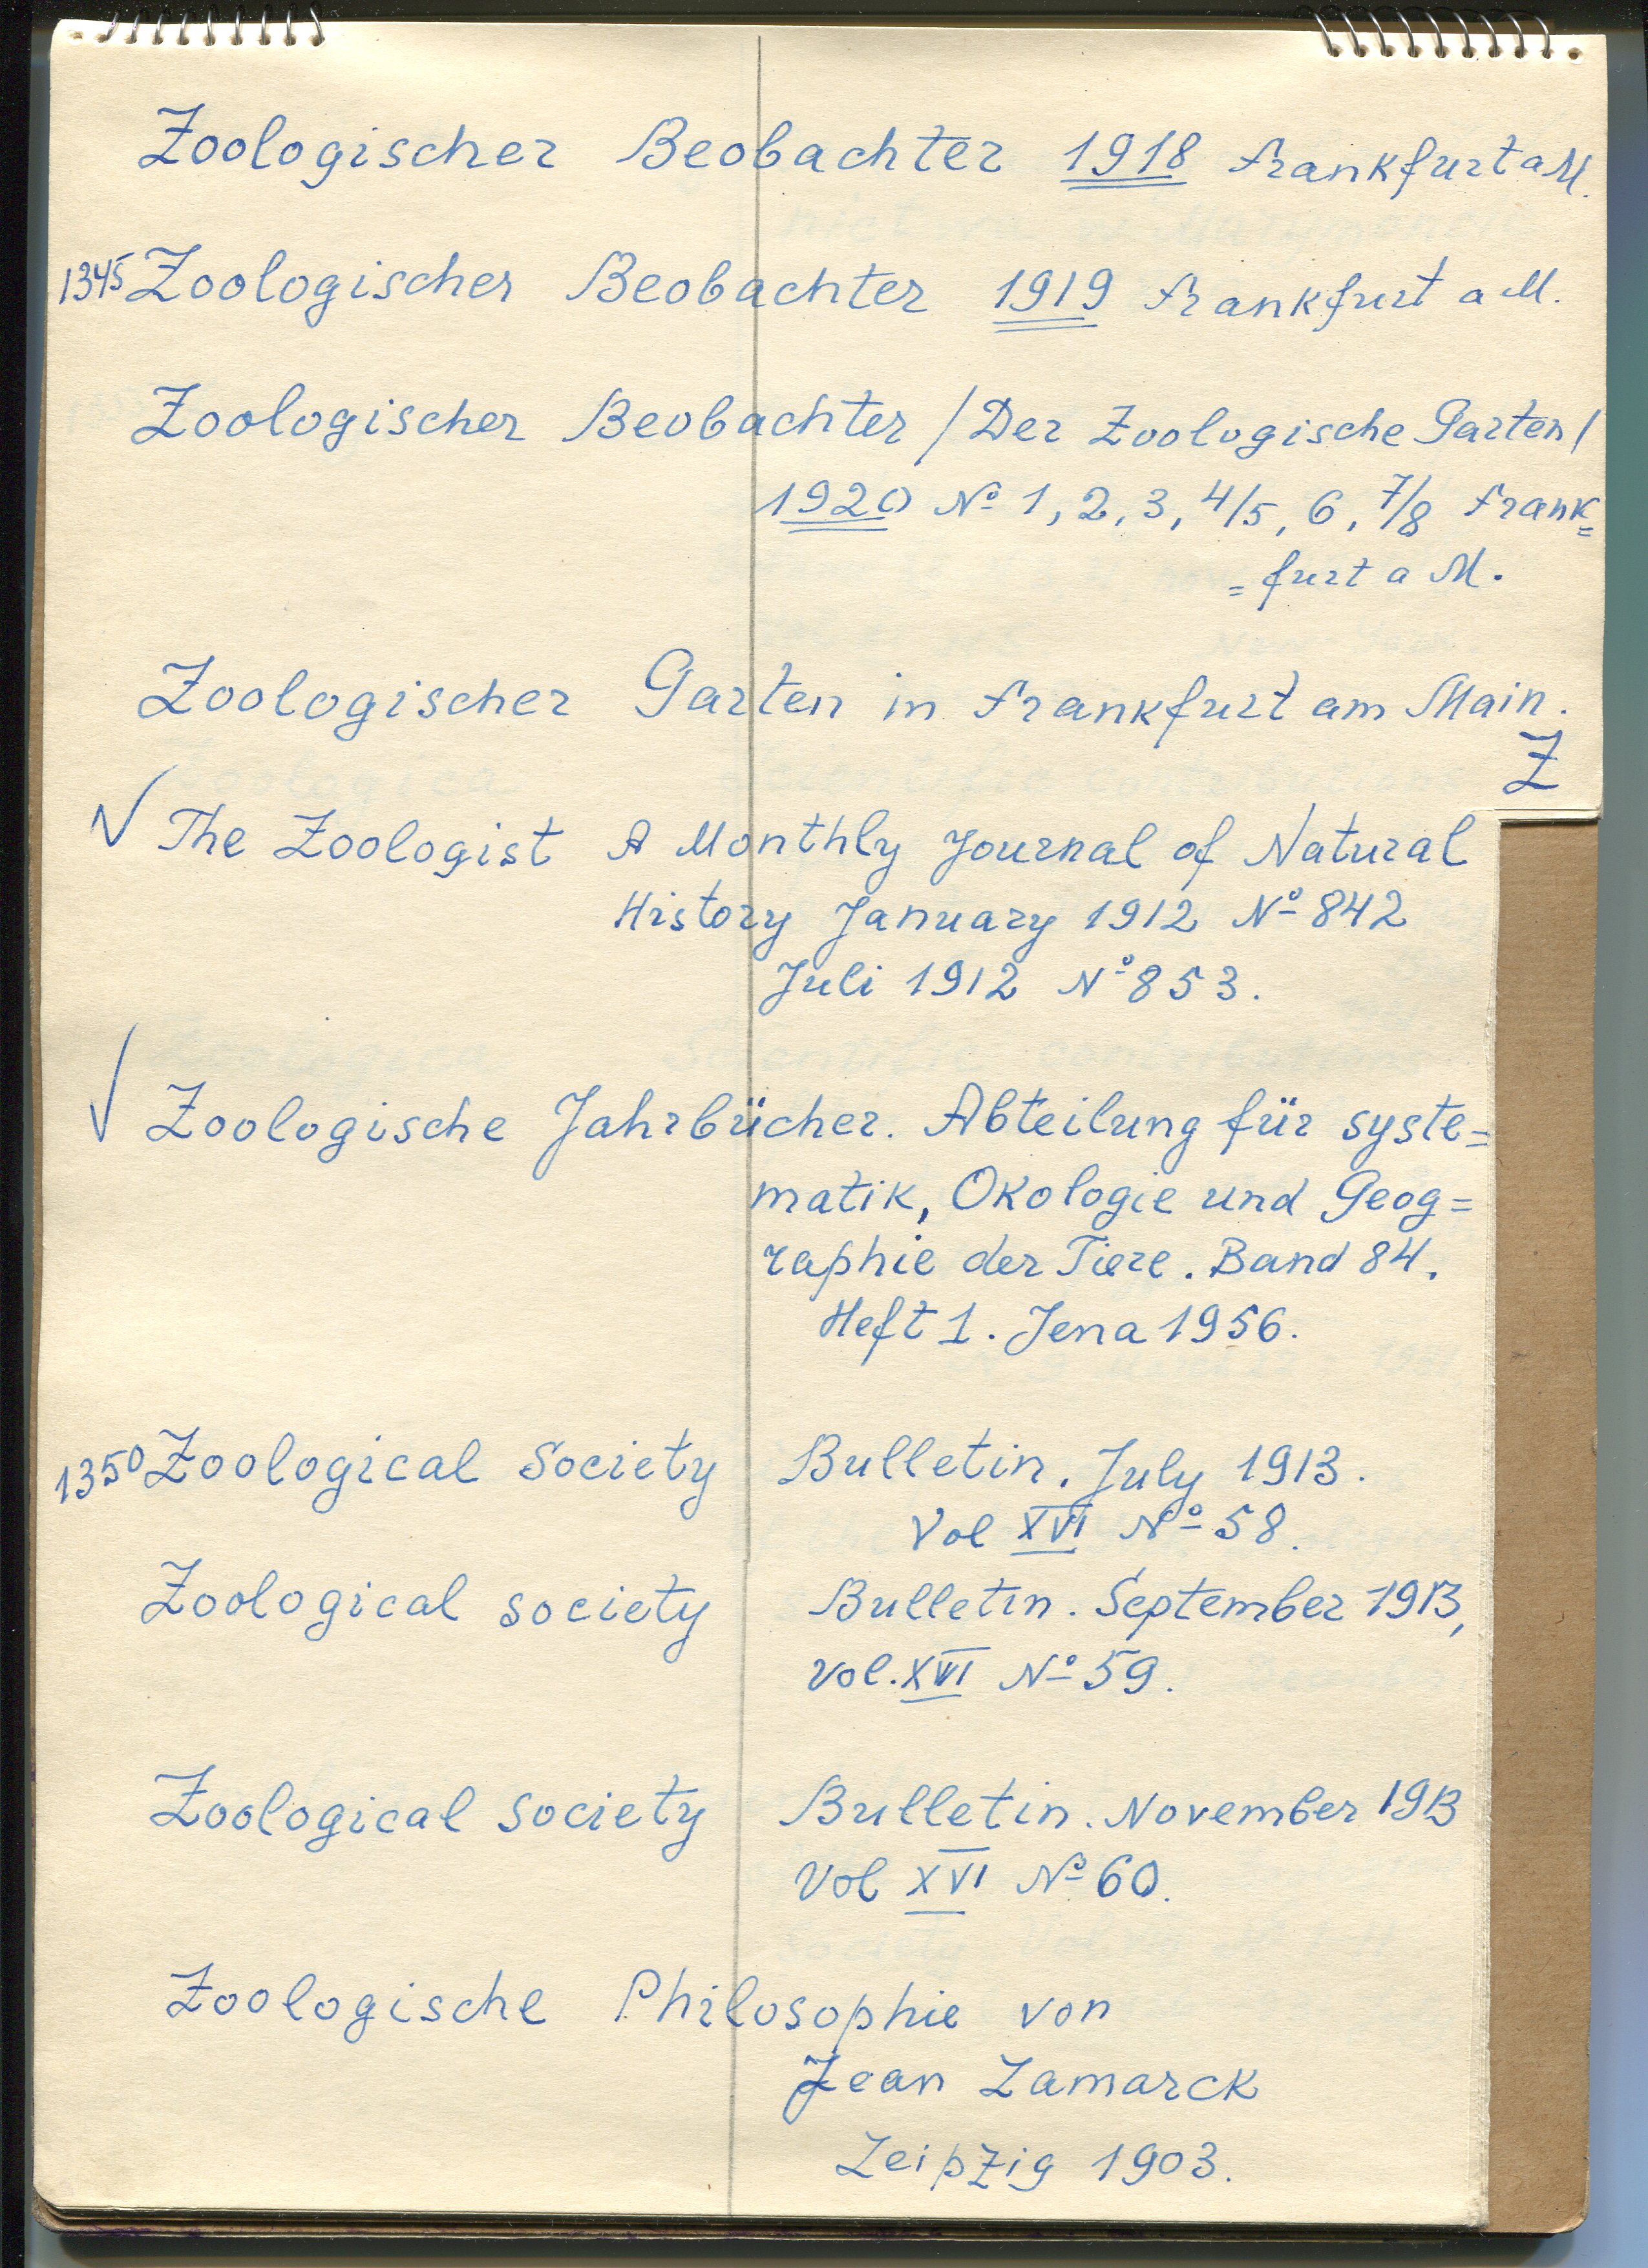 Zoologischer Beobachter 1918 Frankfurt a M.
1345 Zoologischer Beobachter 1919 Frankfurt a M.
Zoologischer Beobachter /Der Zoologische Garten/
1920 № 1, 2, 3, 4/5, 6, 7/8 Frank=
=furt a M.
Zoologischer Garten in Frankfurt am Main.
Z
√ The Zoologist A Monthly Journal of Natural
History January 1912 № 842
Juli 1912 № 853.
√ Zoologische Jahrbücher. Abteilung für syste=
matik, Okologie und Geog=
raphie der Tiere. Band 84.
Heft 1. Jena 1956.
1350 Zoological Society Bulletin. July 1913.
Vol XVI № 58.
Zoological society Bulletin. September 1913,
Vol. XVI № 59.
Zoological society Bulletin. November 1913
Vol XVI № 60.
Zoologische Philosophie von
Jean Lamarck
Leipzig 1903.